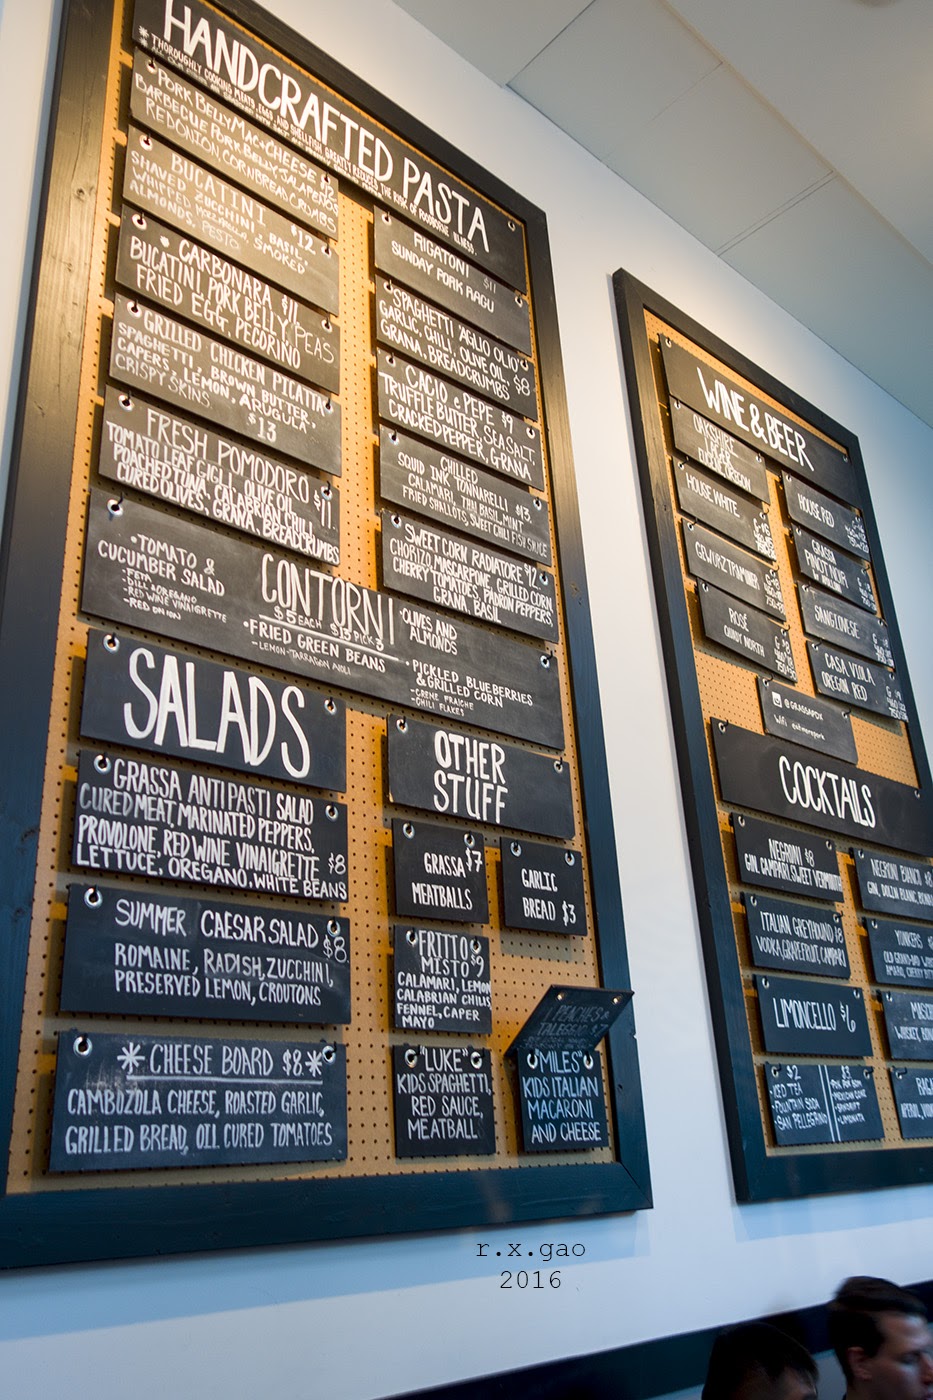 HANDCRAFTED PASTA
* THOROUGHLY COOKING MEATS, EGGS, AND SHELLFISH GREATLY REDUCES THE RISK OF FOODBORNE ILLNESS.
PORK BELLY MAC & CHEESE $12
BARBECUE PORK BELLY, JALAPENOS
RED ONION, CORNBREAD CRUMBS
BUCATINI $12
SHAVED ZUCCHINI, BASIL,
WHIPPED MOZZARELLA, SMOKED
ALMONDS, PESTO
• CARBONARA $11
BUCATINI, PORK BELLY, PEAS
FRIED EGG, PECORINO
GRILLED CHICKEN PICATTA
SPAGHETTI, BROWN BUTTER,
CAPERS, LEMON, ARUGULA,
CRISPY SKINS $13
FRESH POMODORO $11
TOMATO LEAF GIGLI, OLIVE OIL,
POACHED TUNA, CALABRIAN CHILI,
CURED OLIVES, GRANA, BREADCRUMBS
RIGATONI $11
SUNDAY PORK RAGU
SPAGHETTI AGLIO OLIO
GARLIC, CHILI, OLIVE OIL, $8
GRANA, BREADCRUMBS
CACIO e PEPE $9
TRUFFLE BUTTER, SEA SALT,
CRACKED PEPPER, GRANA
CHILLED
SQUID INK TONNARELLI $13
CALAMARI, THAI BASIL, MINT,
FRIED SHALLOTS, SWEET CHILI FISH SAUCE
SWEET CORN RADIATORE $12
CHORIZO, MASCARPONE, GRILLED CORN
CHERRY TOMATOES, PADRON PEPPERS,
GRANA, BASIL
CONTORNI
$5 EACH $13 PICK 3
• TOMATO &
CUCUMBER SALAD
- FETA
- OREGANO
- RED WINE VINAIGRETTE
- RED ONION
• FRIED GREEN BEANS
- LEMON-TARRAGON AIOLI
• OLIVES AND
ALMONDS
• PICKLED BLUEBERRIES
& GRILLED CORN
- CREME FRAICHE
- CHILI FLAKES
SALADS
GRASSA ANTIPASTI SALAD
CURED MEAT, MARINATED PEPPERS,
PROVOLONE, RED WINE VINAIGRETTE $8
LETTUCE, OREGANO, WHITE BEANS
SUMMER CAESAR SALAD $8
ROMAINE, RADISH, ZUCCHINI,
PRESERVED LEMON, CROUTONS
* CHEESE BOARD $8 *
CAMBOZOLA CHEESE, ROASTED GARLIC,
GRILLED BREAD, OIL CURED TOMATOES
OTHER
STUFF
GRASSA $7
MEATBALLS
GARLIC
BREAD $3
FRITTO
MISTO $9
CALAMARI, LEMON
CALABRIAN CHILIS
FENNEL, CAPER
MAYO
PEACHES &
TALEGGIO $7
"LUKE"
KIDS SPAGHETTI,
RED SAUCE,
MEATBALL
"MILES"
KIDS ITALIAN
MACARONI
AND CHEESE
WINE & BEER
HOUSE WHITE
GEWURZTRAMINER
ROSÉ
HOUSE RED
GRASSA
PINOT NOIR
SANGIOVESE
CASA VIOLA
OREGON RED
@GRASSAPDX
wifi eatmorepork
COCKTAILS
NEGRONI $8
GIN, CAMPARI, SWEET VERMOUTH
ITALIAN GREYHOUND $8
VODKA, GRAPEFRUIT, CAMPARI
LIMONCELLO $6
$2
ICED TEA
FOUNTAIN SODA
SAN PELLEGRINO
$3
MEXICAN COKE
NEGRONI BIANCO $8
YONKERS
r.x.gao
2016